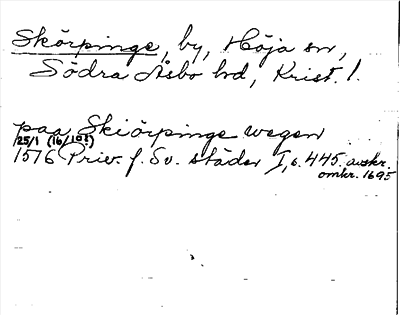 Skörpinge, by, Höja sn,
Södra Åsbo hd, Krist. l.
paa Skiörpinge wegen
25/1 (16/10?)
1576 Priv. f. Sv. städer I, s. 445. avskr.
omkr. 1695